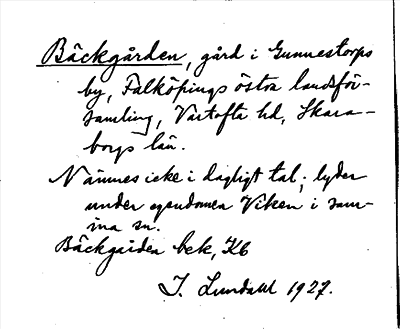 Bäckgården, gård i Gunnestorps
by, Falköpings östra landsför-
samling, Vartofta hd, Skara-
borgs län.
Nämnes icke i dagligt tal; lyder
under egendomen Viken i sam-
ma sn.
Bäckgården bek, Kb
J. Lundahl 1927.